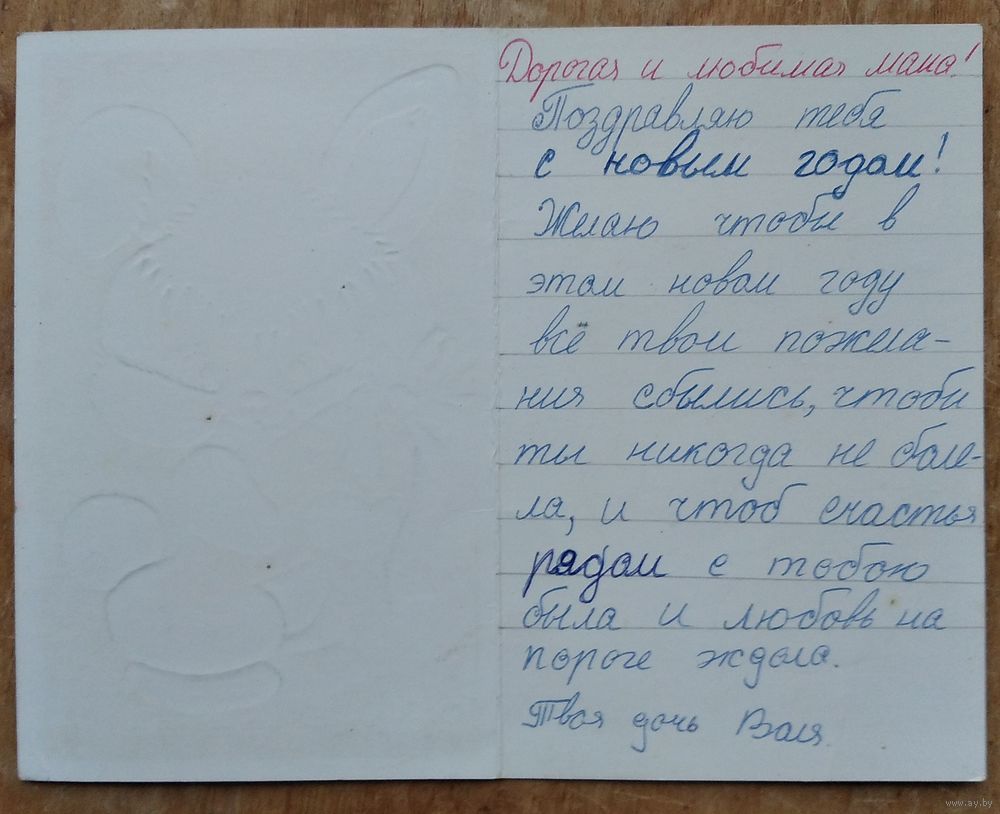 Дорогая и любимая мама!
Поздравляю тебя
с новым годом!
Желаю чтобы в
этом новом году
всё твои пожела-
ния сбылись, чтобы
ты никогда не боле-
ла, и чтоб счастья
рядом с тобою
была и любовь на
пороге ждала.
Твоя дочь Валя.
www.ay.by